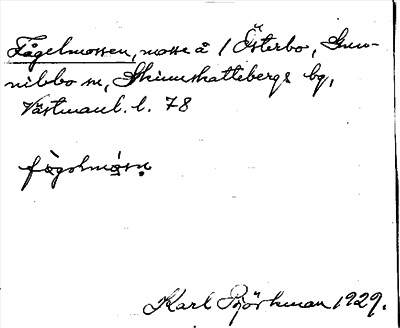 Fågelmossen, mosse å 1 Österbo, Gunn-
nilbo sn, Skinnskattebergs bg,
Västmanl. l. 78
fågolmåsn
Karl Björkman 1929.